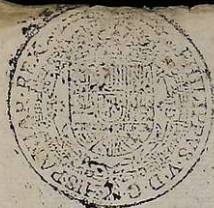 PHILIPPVS.V.D.G. HISPANIAR. REX